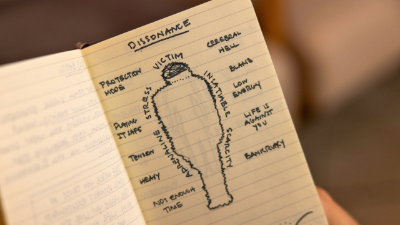 DISSONANCE
VICTIM
CEREBRAL
HELL
PROTECTION
MODE
BLAME
LOW
ENERGY
STRESS
INSATIABLE
PLAYING
IT SAFE
LIFE IS
AGAINST
YOU
ADRENALINE
SCARCITY
TENSION
BANKRUPTCY
HEAVY
NOT ENOUGH
TIME